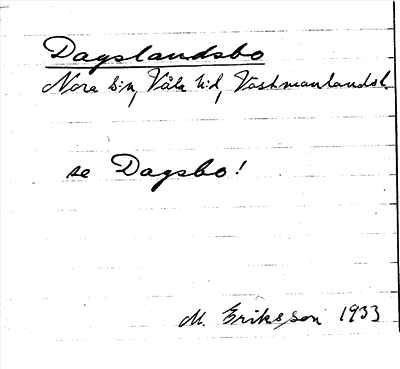 Dagslandsbo
Nora s:n, Våla h:d, Västmanlands l.
se Dagsbo!
M. Eriksson 1933